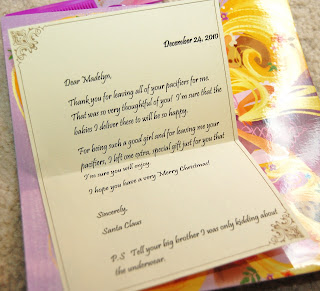 December 24, 2010
Dear Madelyn,
Thank you for leaving all of your pacifiers for me.
That was so very thoughtful of you! I'm sure that the
babies I deliver these to will be so happy.
For being such a good girl and for leaving me your
pacifiers, I left one extra, special gift just for you that
I'm sure you will enjoy.
I hope you have a very Merry Christmas!
Sincerely,
Santa Claus
P.S Tell your big brother I was only kidding about
the underwear.